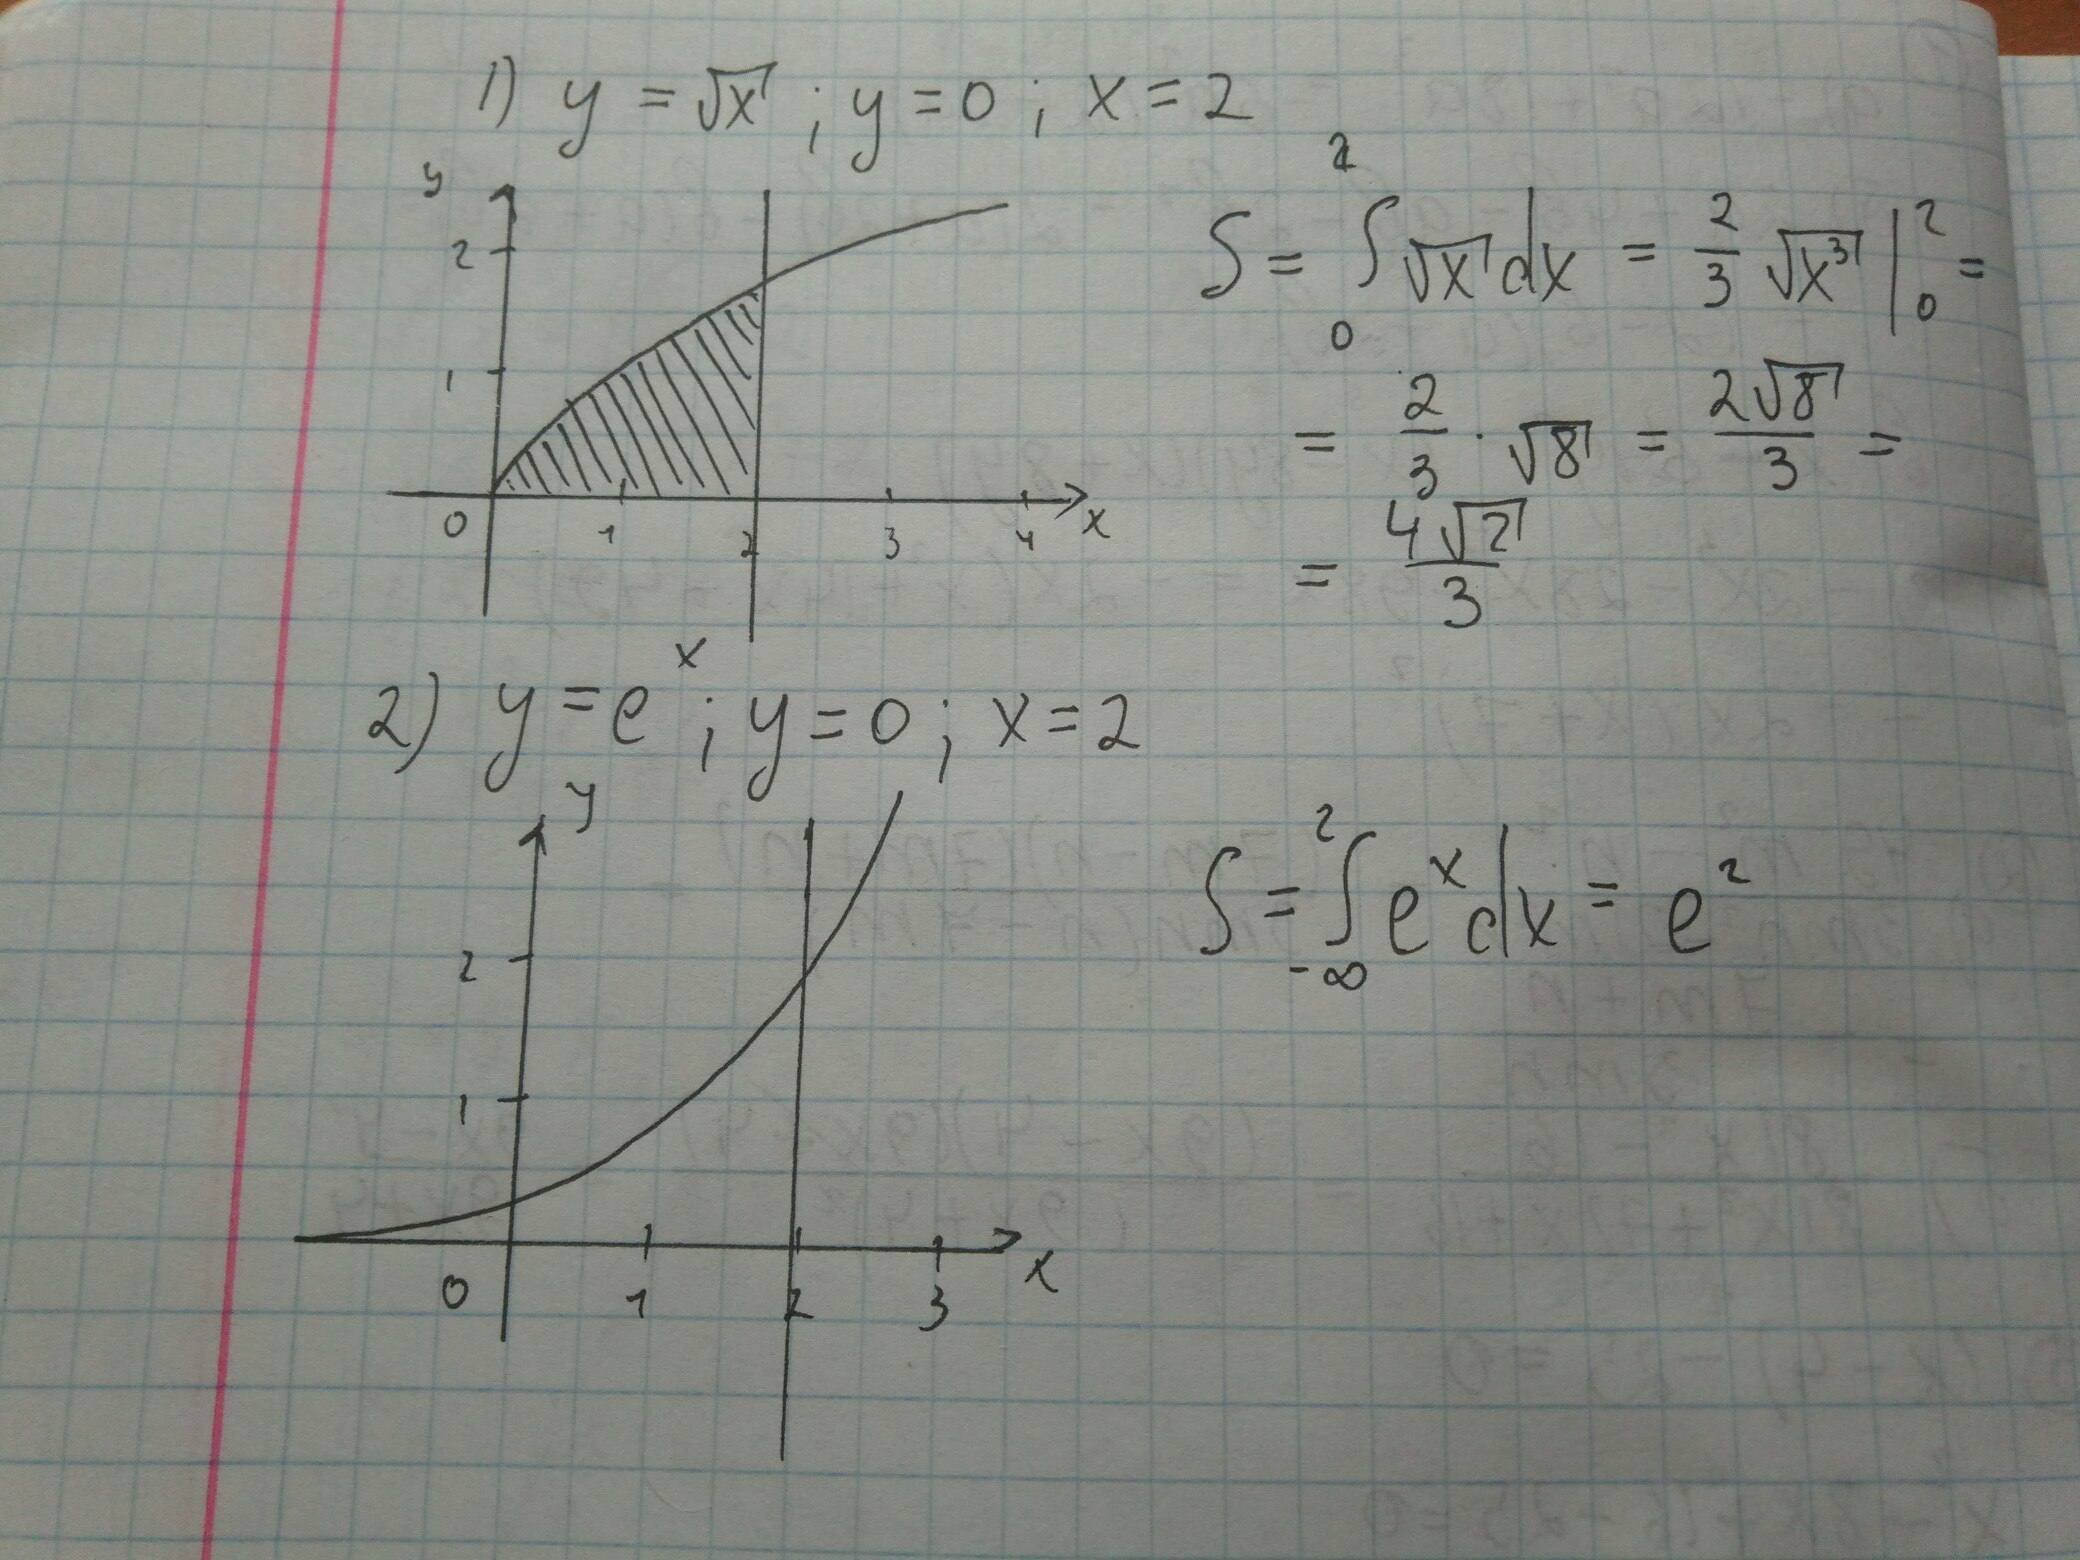 1) y = √x ; y = 0 ; x = 2
y
2
1
0 1 2 3 4 x
S = ∫₀² √x dx = 2/3 √x³ |₀² =
= 2/3 · √8 = 2√8/3 =
= 4√2/3
2) y = eˣ ; y = 0 ; x = 2
y
2
1
0 1 2 3 x
S = ∫₋∞² eˣ dx = e²